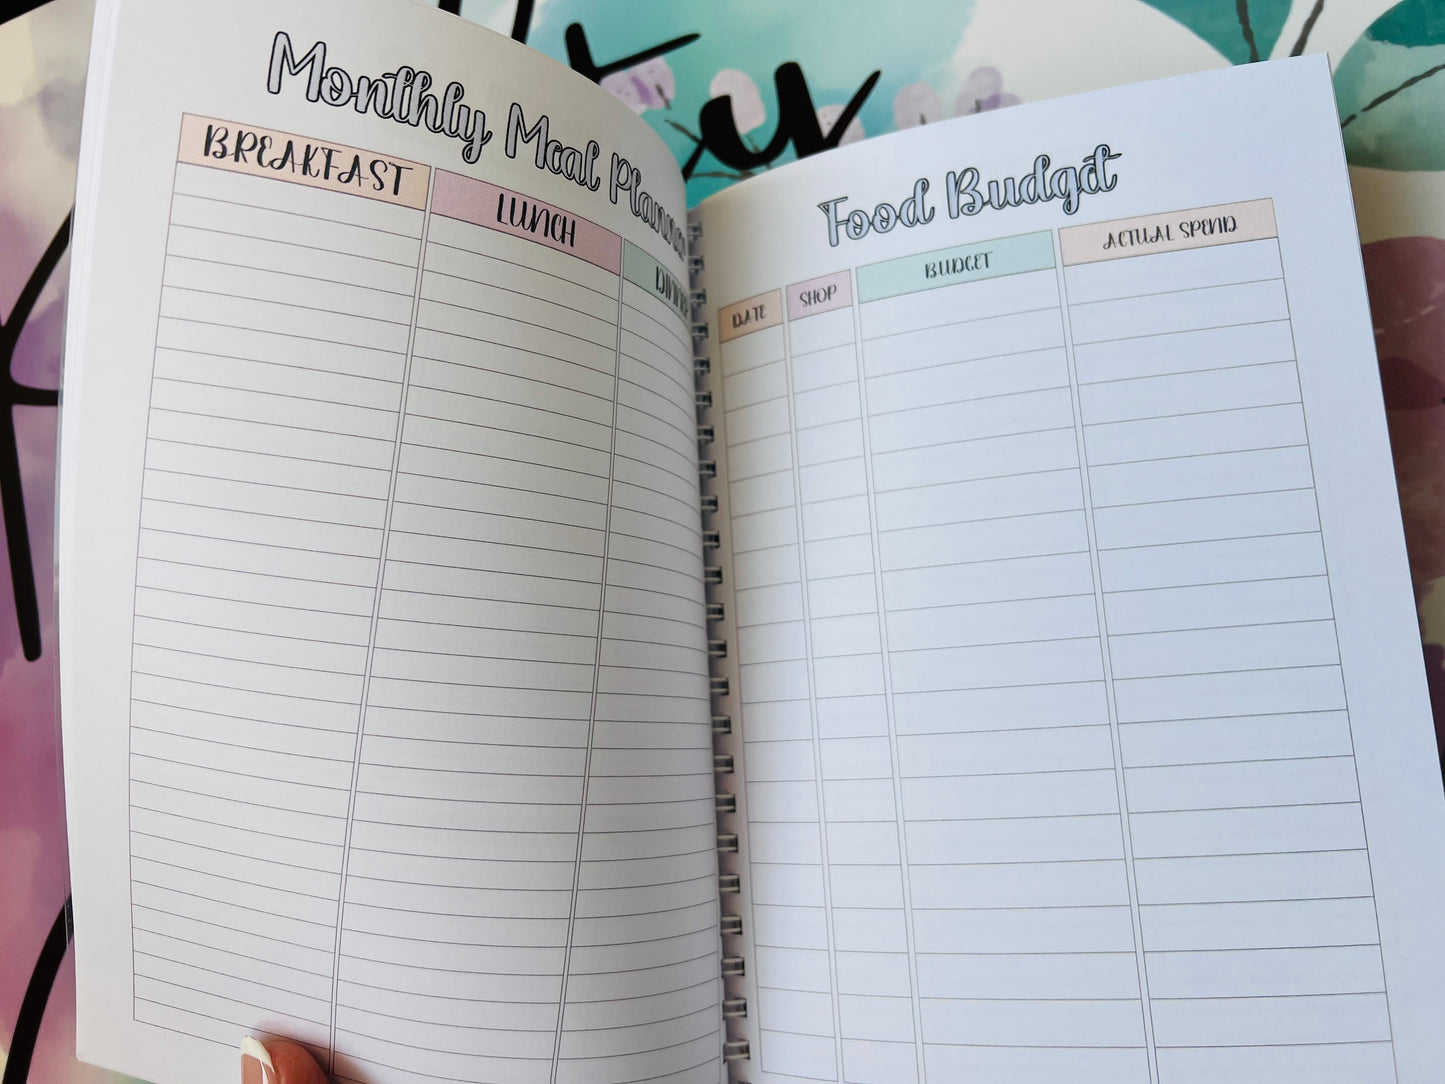 Monthly Meal Planner
BREAKFAST LUNCH DINNER
Food Budget
DATE SHOP BUDGET ACTUAL SPEND